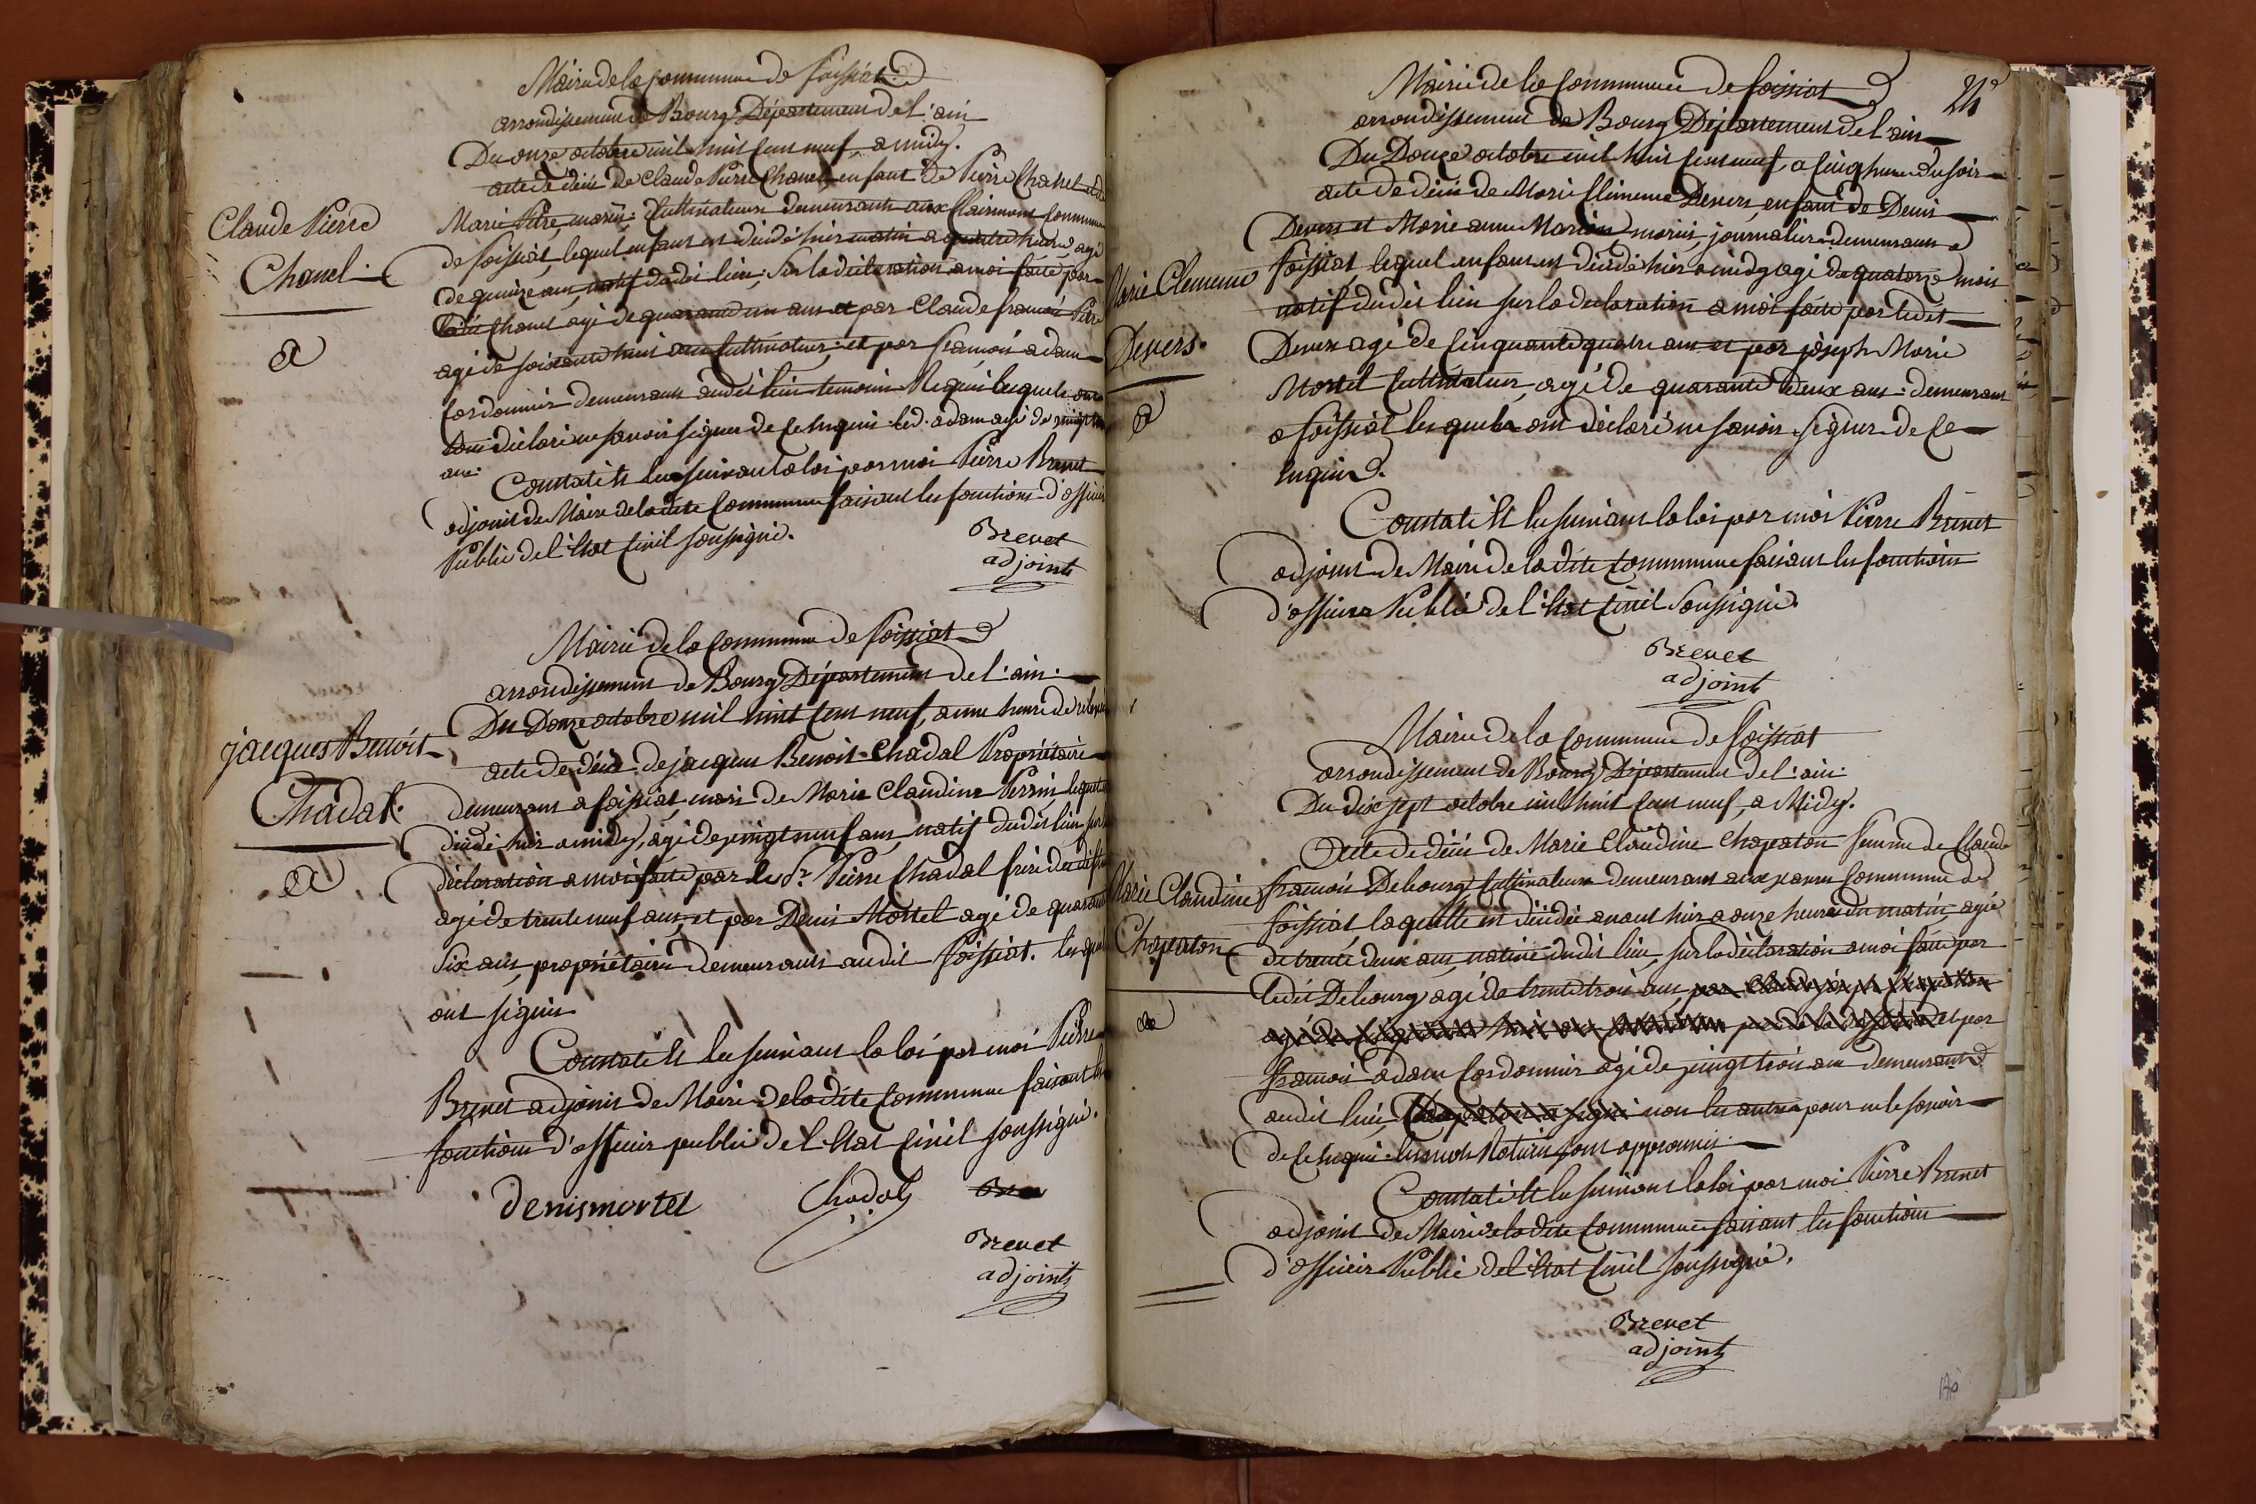 Mairie de la Commune de foissiat
arrondissement de Bourg Département de l'ain
Du onze octobre mil huit cent neuf, a midy.
acte de décé de Claude Pierre Chanel enfant de Pierre Chanel et de
Marie Pitre mariés Cultivateurs demeurants aux Clairmont Commune
de foissiat, lequel enfant est décédé hier matin a quatre heure, agé
de quinze ans, natif dudit lieu, sur la déclaration a moi faite par
ledit Chanel agé de quarante un ans et par Claude francois Pitre
agé de soixante huit ans Cultivateur, et par francois adam
Cordonnier demeurants audit lieu temoins Requis lesquels ont
tous déclaré ne savoir signer de ce enquis led. adam agé de vingt trois
ans.
Constaté et lu suivant la loi par moi Pierre Brevet
adjoint de Maire de la dite Commune faisant les fonctions d'officier
Public de l'état Civil soussigné.
Brevet
adjoint
Claude Pierre
Chanel
Mairie de la Commune de foissiat
arrondissement de Bourg Département de l'ain
Du Douze octobre mil huit cent neuf, a une heure de relevée
acte de décé de jacques Benoit Chadal Propriétaire
demeurant a foissiat, mari de Marie Claudine Perrin, lequel est
décédé hier a midy, agé de vingt neuf ans, natif dudit lieu, sur la
déclaration a moi faite par le Sr. Pierre Chadal frere du défunt
agé de trente neuf ans, et par Denis Mortel agé de quarante
six ans, propriétaires demeurants audit foissiat. lesquels
ont signés
Constaté et lu suivant la loi par moi Pierre
Brevet adjoint de Maire de la dite Commune faisant les
fonctions d'officier public de l'état Civil soussigné.
denis mortel Chadal Bre
Brevet
adjoint
jacques Benoit
Chadal.
24
Mairie de la Commune de foissiat
arrondissement de Bourg Département de l'ain
Du Douze octobre mil huit cent neuf, a cinq heure du soir
acte de décé de Marie Clemence Devers, enfant de Denis
Devers et Marie anne Marion mariés, journaliers demeurants a
foissiat, lequel enfant est décédé hier a midy agé de quatorze mois
natif dudit lieu sur la déclaration a moi faite par ledit
Devers agé de cinquante quatre ans et par joseph Marie
Mortel Cultivateur, agé de quarante deux ans demeurant
a foissiat lesquels ont déclaré ne savoir signer de ce
enquis.
Constaté et lu suivant la loi par moi Pierre Brevet
adjoint de Maire de la dite Commune faisant les fonctions
d'officier Public de l'état Civil soussigné.
Brevet
adjoint
Marie Clemence
Devers.
Mairie de la Commune de foissiat
arrondissement de Bourg Département de l'ain
Du dix sept octobre mil huit cent neuf, a Midy.
Acte de décé de Marie Claudine Chapaton femme de Claude
francois Debourg Cultivateurs demeurant aux Commune de
foissiat, laquelle est décédée avant hier a onze heures du matin, agée
de trente deux ans, native dudit lieu, sur la déclaration a moi faite par
ledit Debourg agé de trente trois ans, par Claude joseph Chapaton
agé de et par
francois adam Cordonnier agé de vingt trois ans demeurant
audit lieu, Chapaton a signé non les autres pour ne le savoir
de ce enquis. les mots Raturés sont approuvés.
Constaté et lu suivant la loi par moi Pierre Brevet
adjoint de Maire de la dite Commune faisant les fonctions
d'officier Public de l'état Civil soussigné.
Brevet
adjoint
Marie Claudine
Chapaton